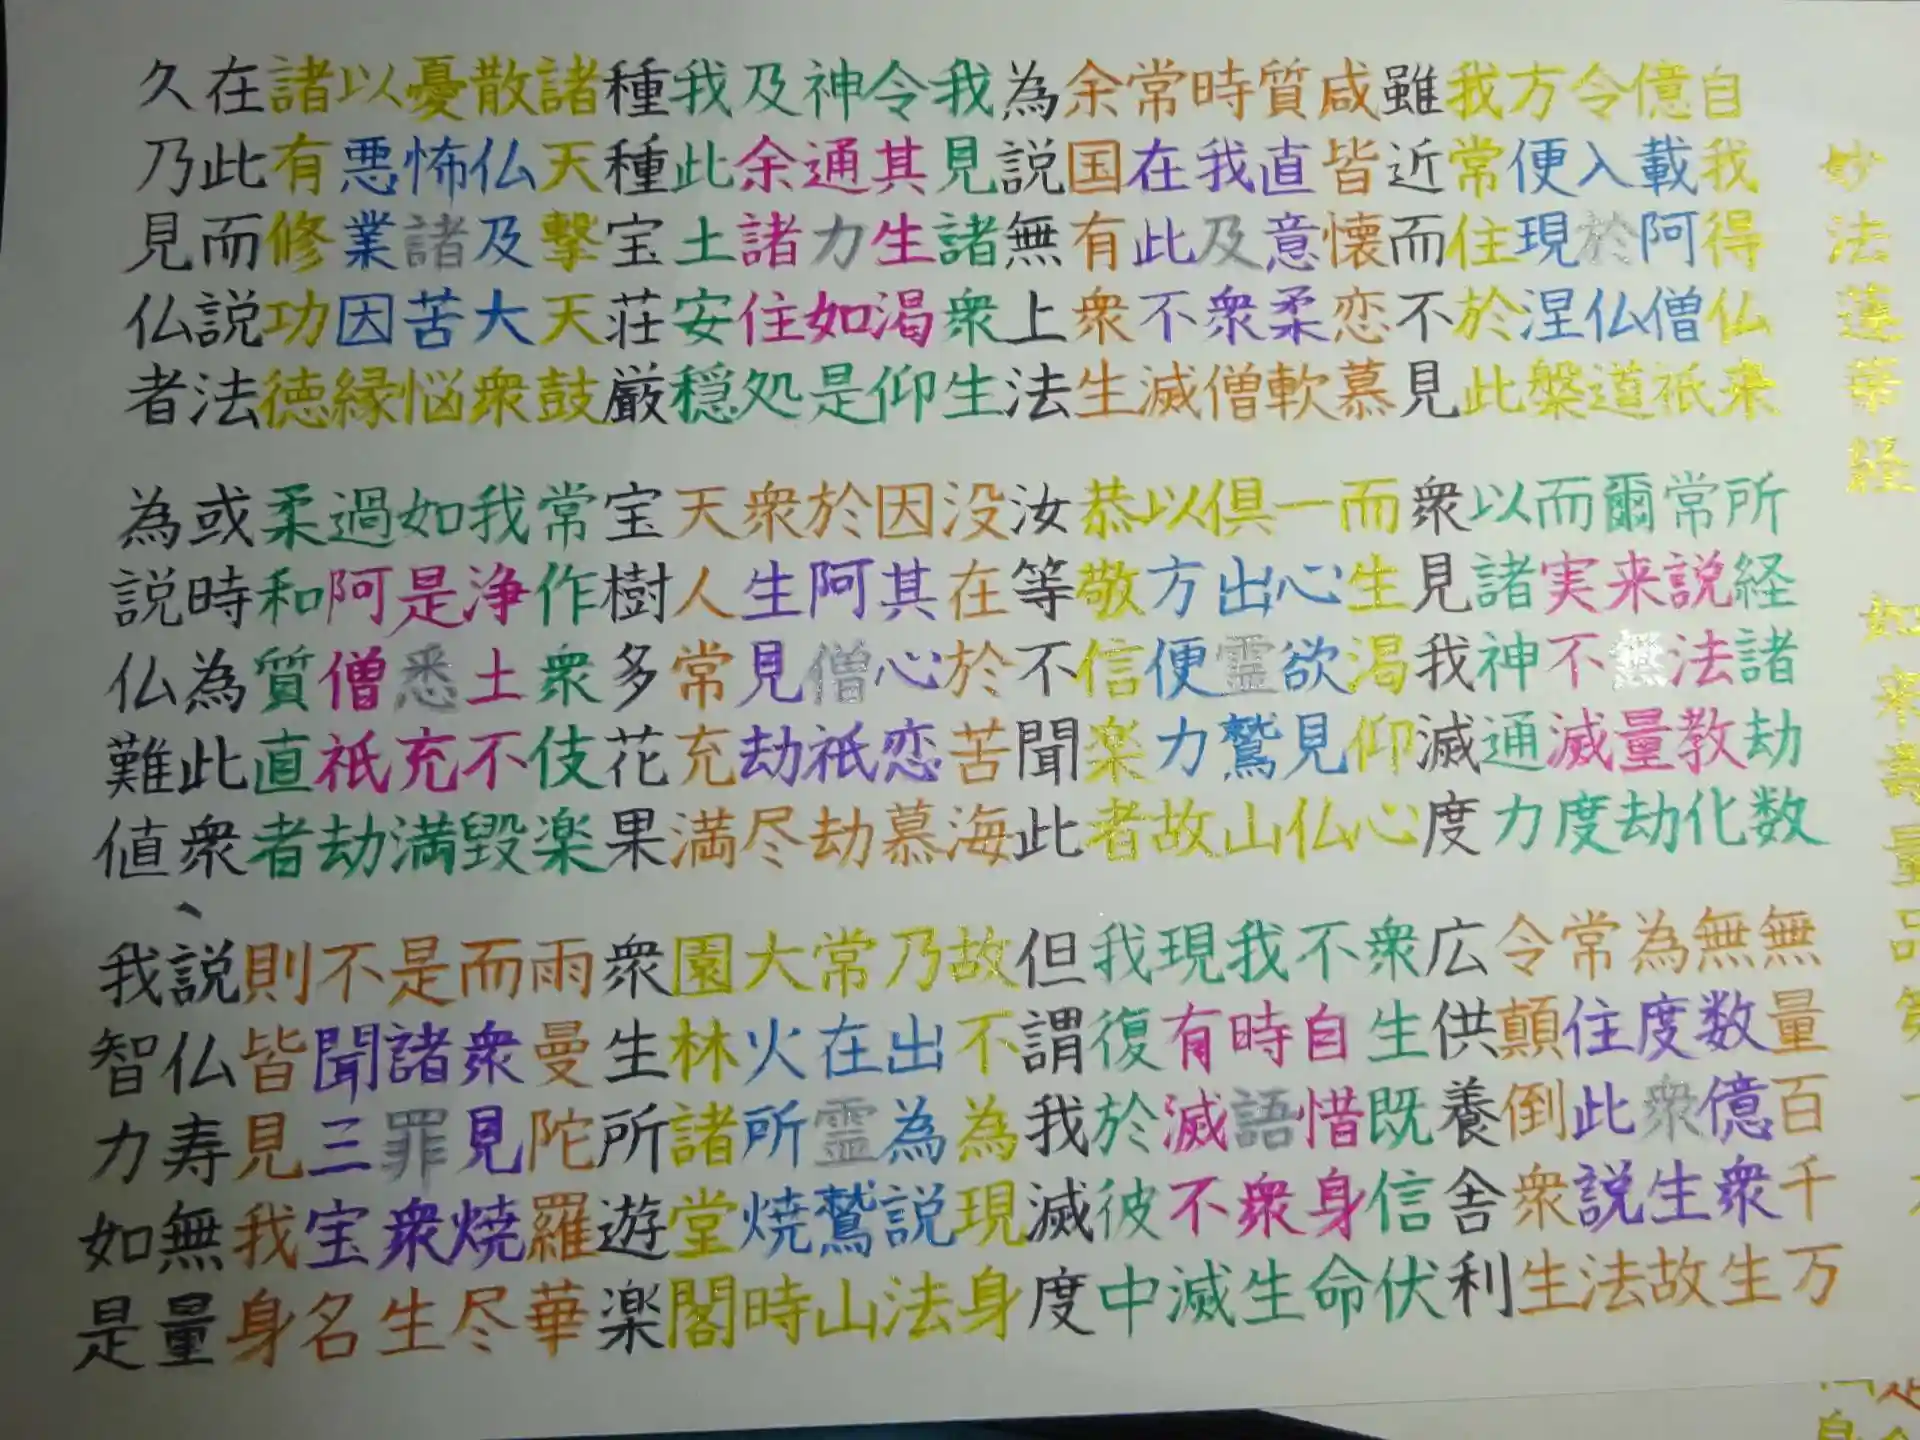 妙法蓮華経 如来寿量品第
自我得仏来 所経諸劫数 無量百千万
億載阿僧祇 常説法教化 無数億衆生
令入於仏道 爾来無量劫 為度衆生故
方便現涅槃 而実不滅度 常住此説法
我常住於此 以諸神通力 令顛倒衆生
雖近而不見 衆見我滅度 広供養舎利
咸皆懐恋慕 而生渇仰心 衆生既信伏
質直意柔軟 一心欲見仏 不自惜身命
時我及衆僧 倶出霊鷲山 我時語衆生
常在此不滅 以方便力故 現有滅不滅
余国有衆生 恭敬信楽者 我復於彼中
為説無上法 汝等不聞此 但謂我滅度
我見諸衆生 没在於苦海 故不為現身
令其生渇仰 因其心恋慕 乃出為説法
神通力如是 於阿僧祇劫 常在霊鷲山
及余諸住処 衆生見劫尽 大火所焼時
我此土安穏 天人常充満 園林諸堂閣
種種宝荘厳 宝樹多花果 衆生所遊楽
諸天撃天鼓 常作衆伎楽 雨曼陀羅華
散仏及大衆 我浄土不毀 而衆見焼尽
憂怖諸苦悩 如是悉充満 是諸罪衆生
以悪業因縁 過阿僧祇劫 不聞三宝名
諸有修功徳 柔和質直者 則皆見我身
在此而説法 或時為此衆、説仏寿無量
久乃見仏者 為説仏難値 我智力如是